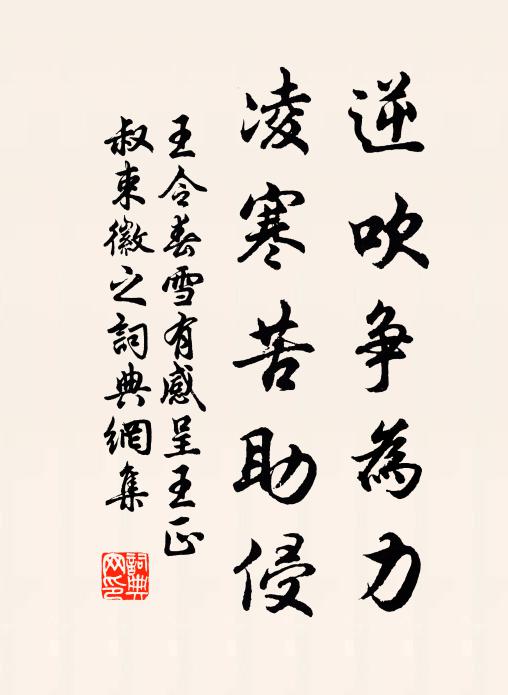 逆吹争為力
凌寒苦助侵
王令春雪有感呈王正
叔束徽之詞典網集
詞典
网印